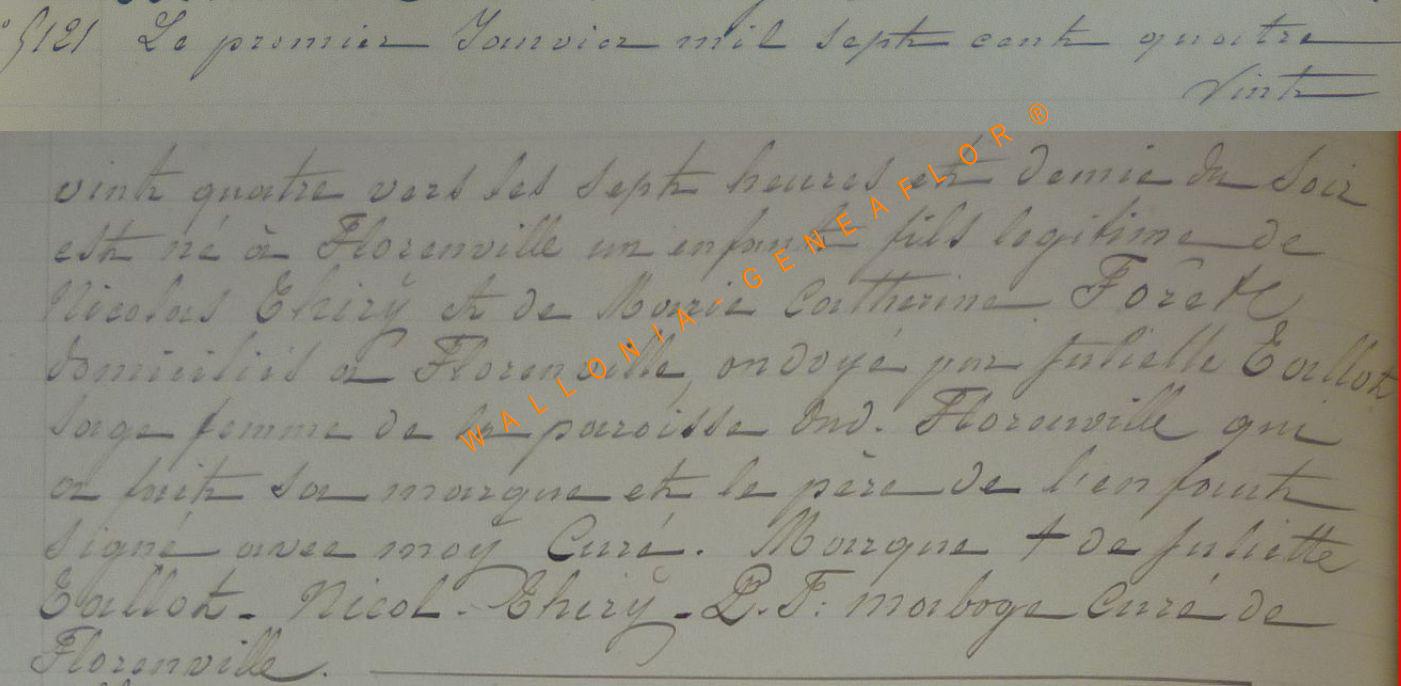 n° 5121 Le premier Janvier mil sept cent quatre
Vint
vint quatre vers les sept heures et demie du Soir
est né à Florenville un enfant fils legitime de
Nicolas Thirÿ et de Marie Catherine Forêt
domiciliés a Florenville, ondoyé par Juliette Tallot
Sage femme de la paroisse dud. Florenville qui
a fait sa marque et le père de l'enfant
signé avec moÿ Curé. Marque + de Juliette
Tallot - Nicol - Thirÿ - P. F: maboge Curé de
Florenville.
WALLONIA-GENEAFLOR®